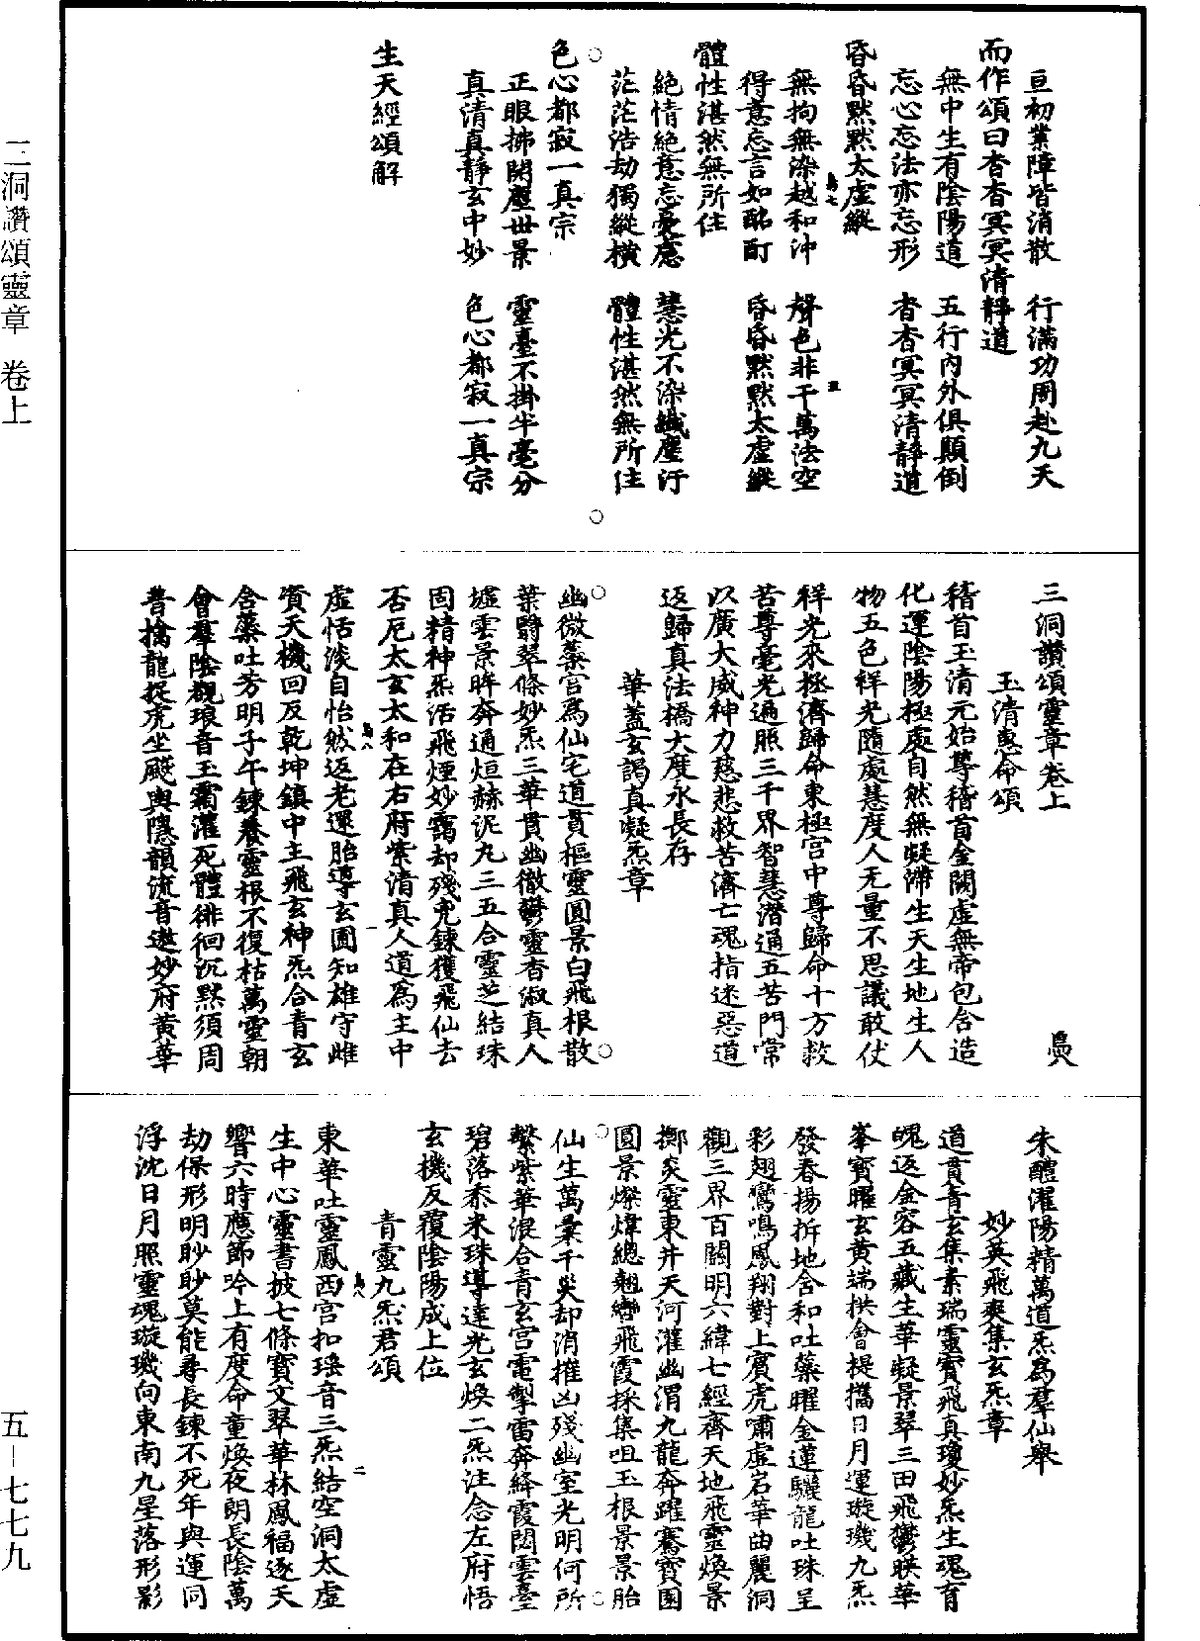 亘初業障皆消散　行滿功周赴九天
而作頌曰杳杳冥冥清靜道
無中生有陰陽道　五行內外俱顛倒
忘心忘法亦忘形　杳杳冥冥清靜道
昏昏默默太虛縱
無拘無染越和沖　聲色非干萬法空
得意忘言如酩酊　昏昏默默太虛縱
體性湛然無所住
絶情絶意忘憂慮　慧光不染纖塵汙
茫茫浩劫獨縱橫　體性湛然無所住
色心都寂一真宗
正眼拂開塵世景　靈臺不掛半毫分
真清真靜玄中妙　色心都寂一真宗
生天經頌解
三洞讚頌靈章卷上
玉清惠命頌
稽首玉清元始尊稽首金闕虛無帝包含造
化運陰陽極處自然無凝滯生天生地生人
物五色祥光隨處慧度人无量不思議敢仗
祥光來拯濟歸命東極宮中尊歸命十方救
苦尊毫光遍照三千界智慧潛通五苦門常
以廣大威神力慈悲救苦濟亡魂指迷惡道
返歸真法橋大度永長存
華蓋玄謁真凝炁章
幽微蘂宮爲仙宅道貫樞靈圓景白飛根散
葉爵翠條妙炁三華貫幽徹鬱靈杳淑真人
墟雲景眸奔通烜赫泥九三五合靈芝結珠
固精神炁活飛煙妙靄却殘兇鍊獲飛仙去
否厄太玄太和在右府紫清真人道爲主中
虛恬淡自怡然返老還胎導玄圃知雄守雌
賓天機回反乾坤鎮中主飛玄神炁合青玄
含蘂吐芳明子午鍊養靈根不復枯萬靈朝
會羣陰觀琅音玉霜灌死體徘徊沉默須周
普擒龍捉虎坐飈輿隱韻流音遨妙府黃華
朱醴濯陽精萬道炁爲羣仙舉
妙英飛爽集玄炁章
道貫青玄集素瑞靈寶飛真瓊妙炁生魂育
魄返金容五藏生華凝景翠三田飛鬱映華
峯寶曜玄黃端拱會提攜日月運璇璣九炁
發春揚拆地含和吐藥曜金蓮驪龍吐珠呈
彩翅鸞鳴鳳翔對上賓虎嘯虛岩華曲麗洞
觀三界百關明六緯七經齊天地飛靈煥景
擲炎靈東井天河灌幽渭九龍奔躍騫寶園
圓景燦煒總翹巒飛霞採集咀玉根景景胎
仙生萬彙千災却消摧凶殘幽室光明何所
繫紫華混合青玄宮電掣雷奔絳霞閎雲臺
碧落黍米珠導達光玄煥二炁注念左府悟
玄機反覆陰陽成上位
青靈九炁君頌
東華吐靈鳳西宮扣瑶音三炁結空洞太虛
生中心靈書披七條寶文翠華林鳳福逐天
響六時應節吟上有度命童煥夜朗長陰萬
劫保形明眇眇莫能尋長鍊不死年與運同
浮沈日月照靈魂璇璣向東南九星落形影
三洞讚頌靈章　卷上
五－七七九